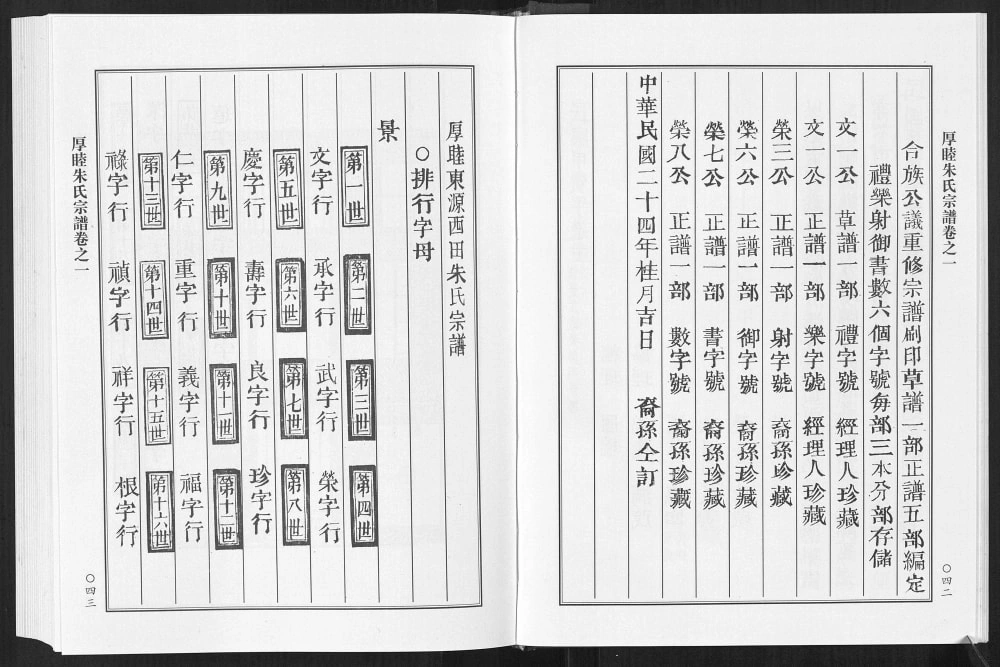 厚睦朱氏宗譜卷之一
〇四二
合族公議重修宗譜刷印草譜一部正譜五部編定
禮樂射御書數六個字號每部三本分部存儲
文一公 草譜一部 禮字號 經理人珍藏
文一公 正譜一部 樂字號 經理人珍藏
榮三公 正譜一部 射字號 裔孫珍藏
榮六公 正譜一部 御字號 裔孫珍藏
榮七公 正譜一部 書字號 裔孫珍藏
榮八公 正譜一部 數字號 裔孫珍藏
中華民國二十四年桂月吉日 裔孫仝訂
厚睦東源西田朱氏宗譜
〇排行字母
景
第一世 第二世 第三世 第四世
文字行 承字行 武字行 榮字行
第五世 第六世 第七世 第八世
慶字行 壽字行 良字行 珍字行
第九世 第十世 第十一世 第十二世
仁字行 重字行 義字行 福字行
第十三世 第十四世 第十五世 第十六世
祿字行 禎字行 祥字行 根字行
厚睦朱氏宗譜卷之一
〇四三